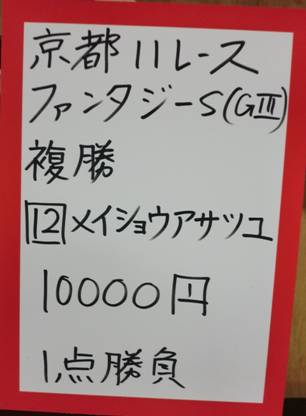 京都11レース
ファンタジーS(GⅢ)
複勝
12メイショウアサツユ
10000円
1点勝負